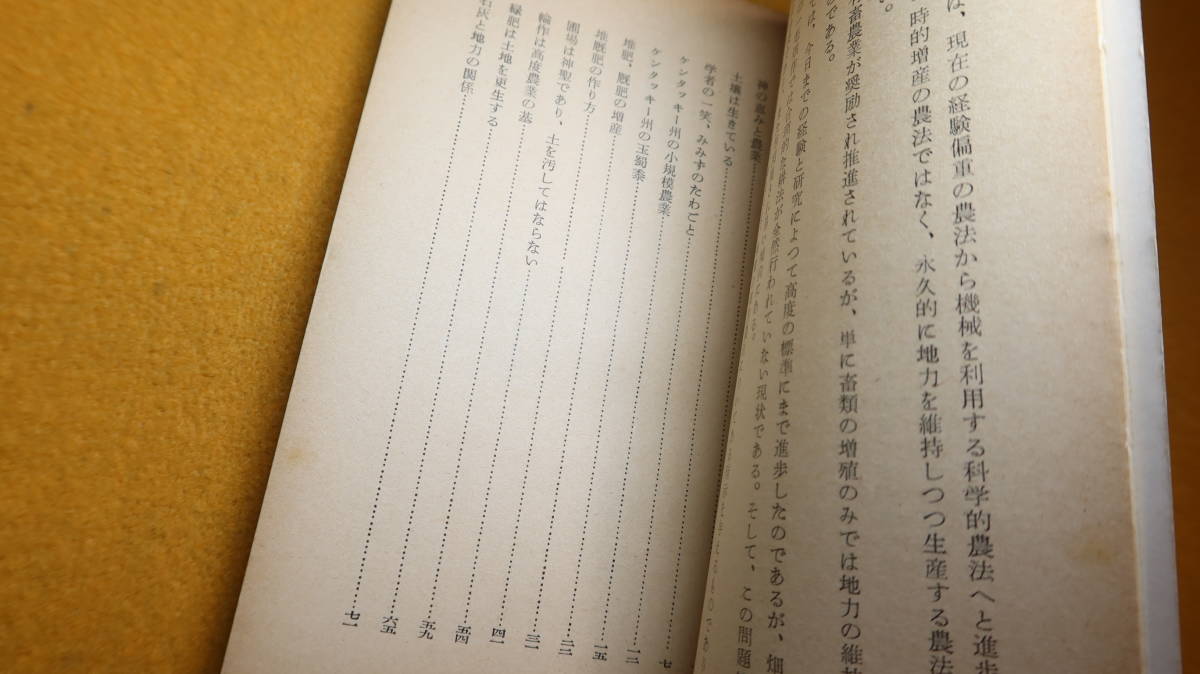 は、現在の経験偏重の農法から機械を利用する科学的農法へと進歩
時的増産の農法ではなく、永久的に地力を維持しつつ生産する農法
。
畜農業が奨励され推進されているが、単に畜類の増殖のみでは地力の維持
のである。
は、今日までの経験と研究によつて高度の標準にまで進歩したのであるが、畑
合理的な耕法が全然行われていない現状である。そして、この問題
神の恵みと農業
土壌は生きている……七
学者の一笑、みみずのたわごと……一二
ケンタッキー州の小規模農業……一五
ケンタッキー州の玉蜀黍……二二
堆肥、厩肥の増産……三一
堆厩肥の作り方……四一
圃場は神聖であり、土を汚してはならない……五四
輪作は高度農業の基……五九
緑肥は土地を更生する……六五
石灰と地力の関係……七一